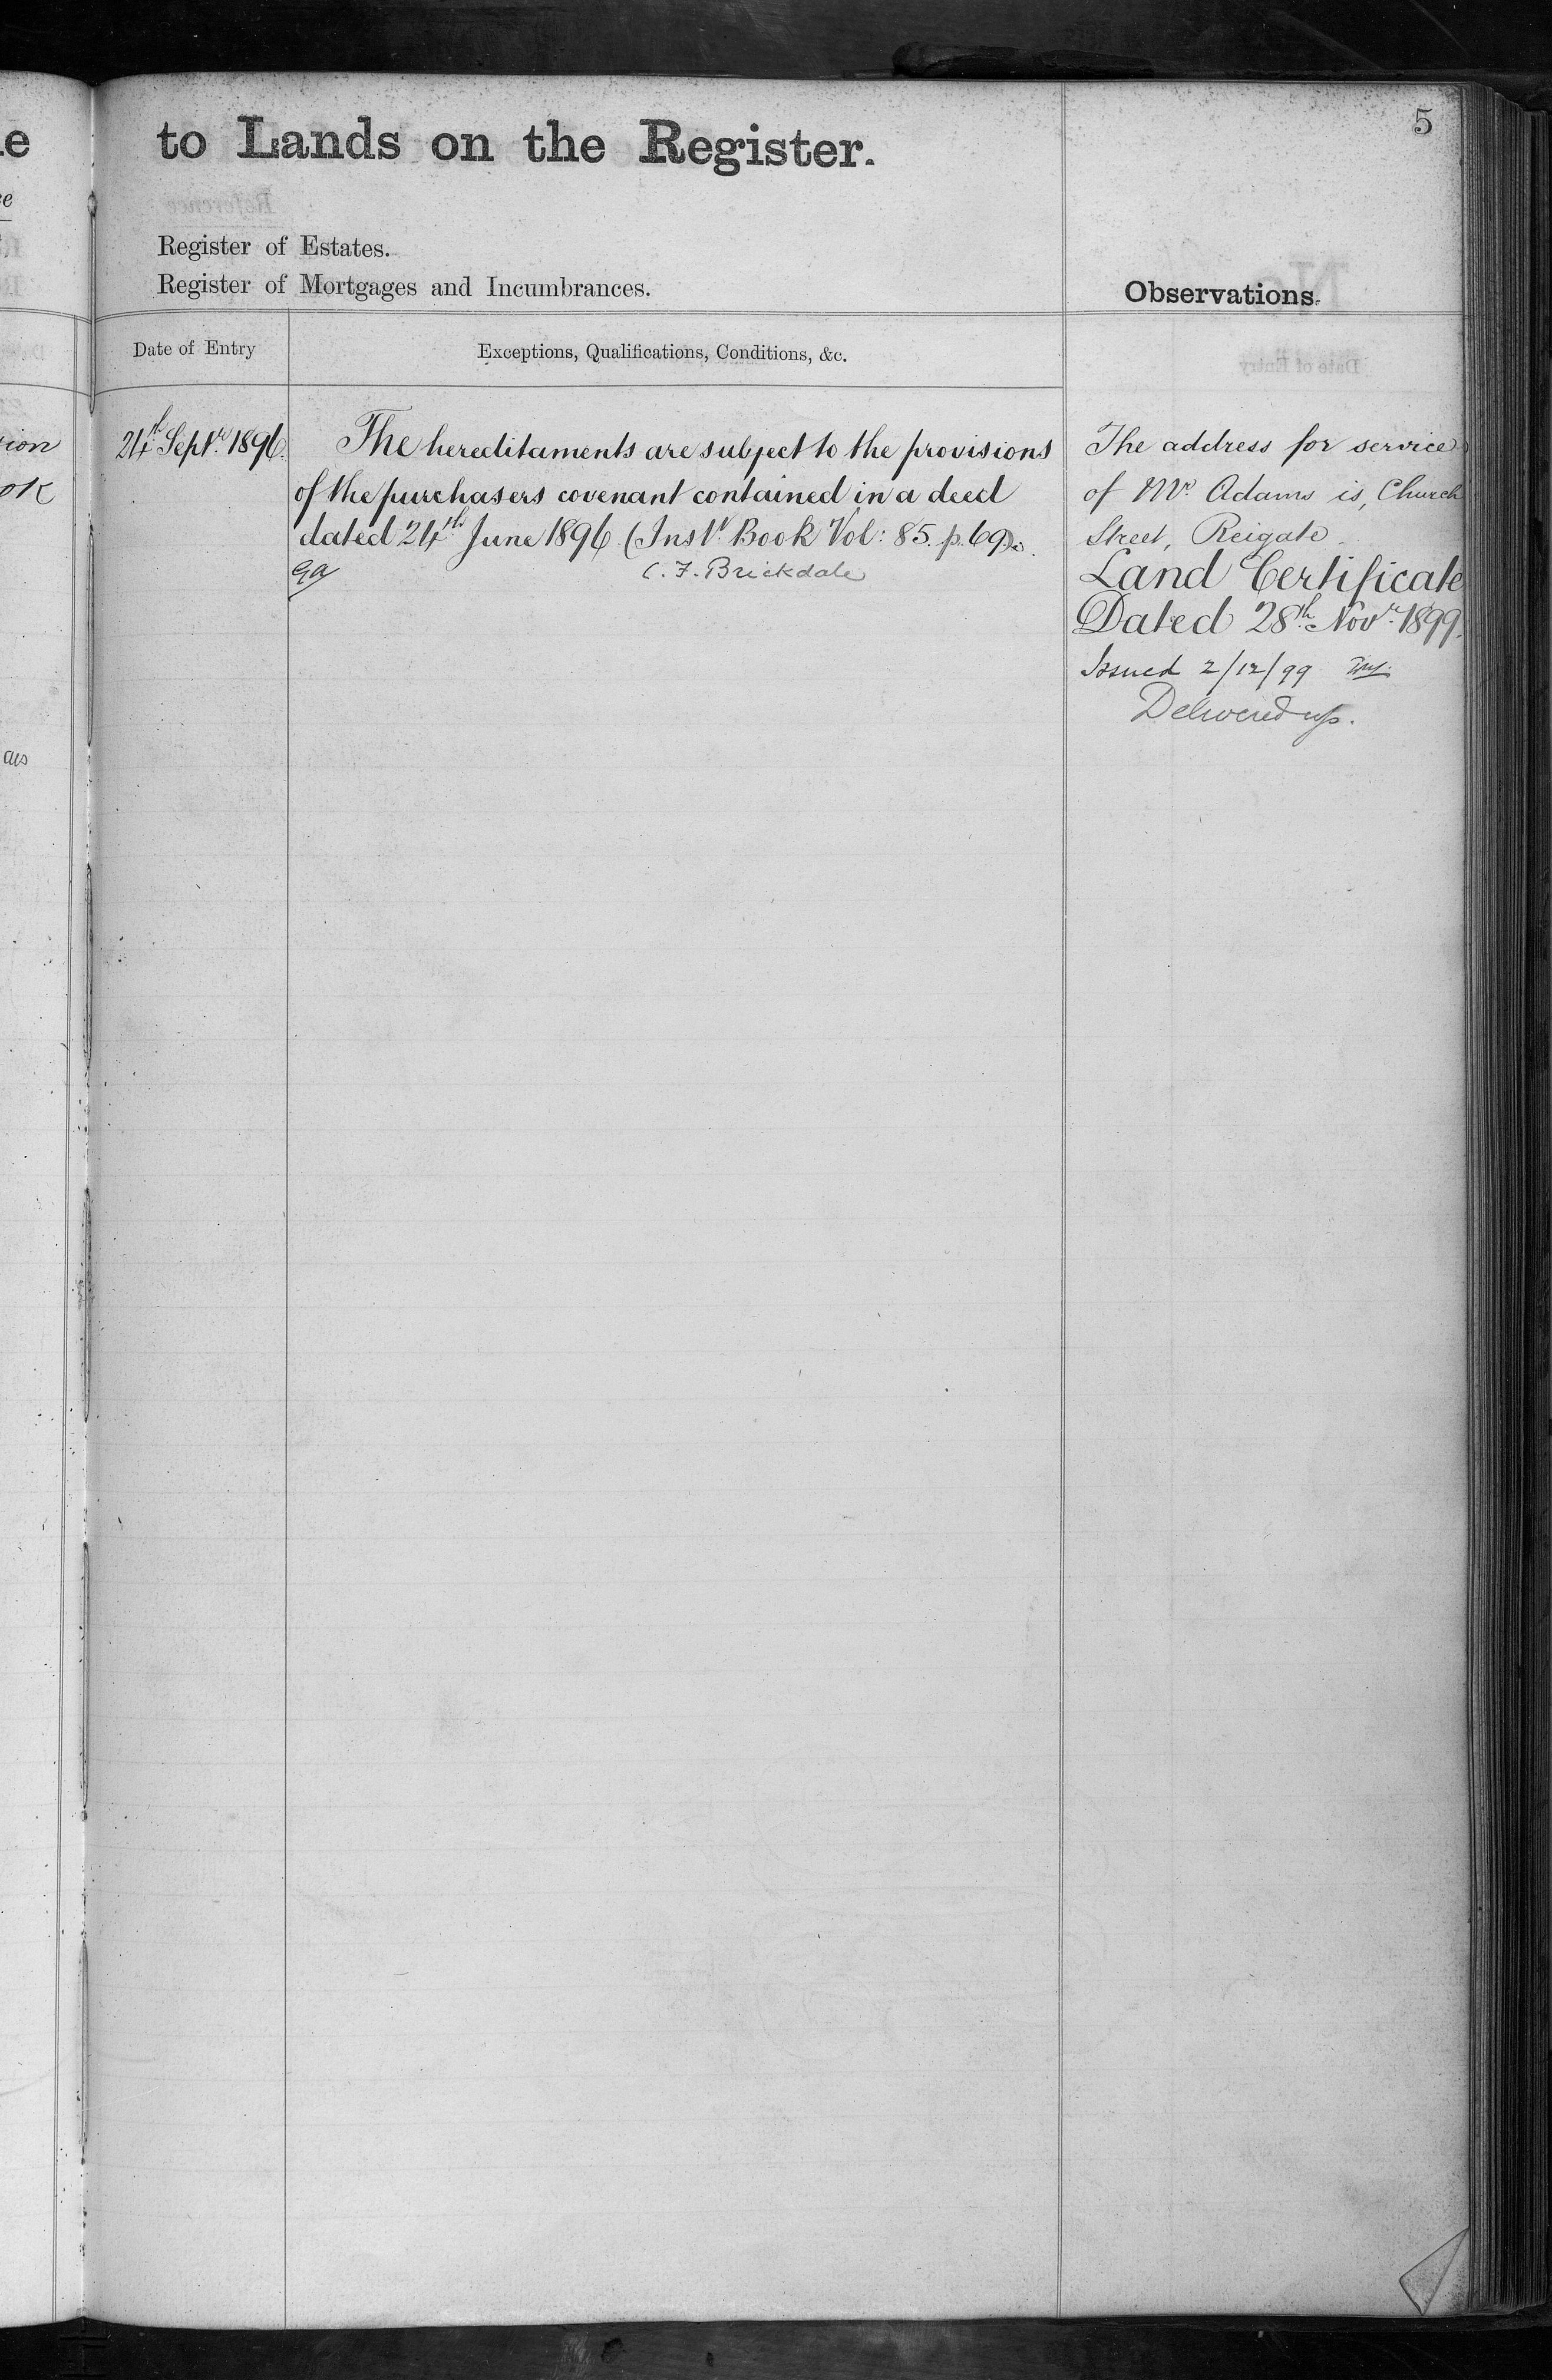 to Lands on the Register.
5
Register of Estates.
Register of Mortgages and Incumbrances.
Observations.
Date of Entry
Exceptions, Qualifications, Conditions, &c.
24th Septr. 1896.
The hereditaments are subject to the provisions
of the purchasers covenant contained in a deed
dated 24th June 1896 (Inst. Book Vol: 85. p. 69).
C. F. Brickdale
The address for service
of Mr. Adams is, Church
Street, Reigate.
Land Certificate
Dated 28th Novr. 1899.
Issued 2/12/99
Delivered up.